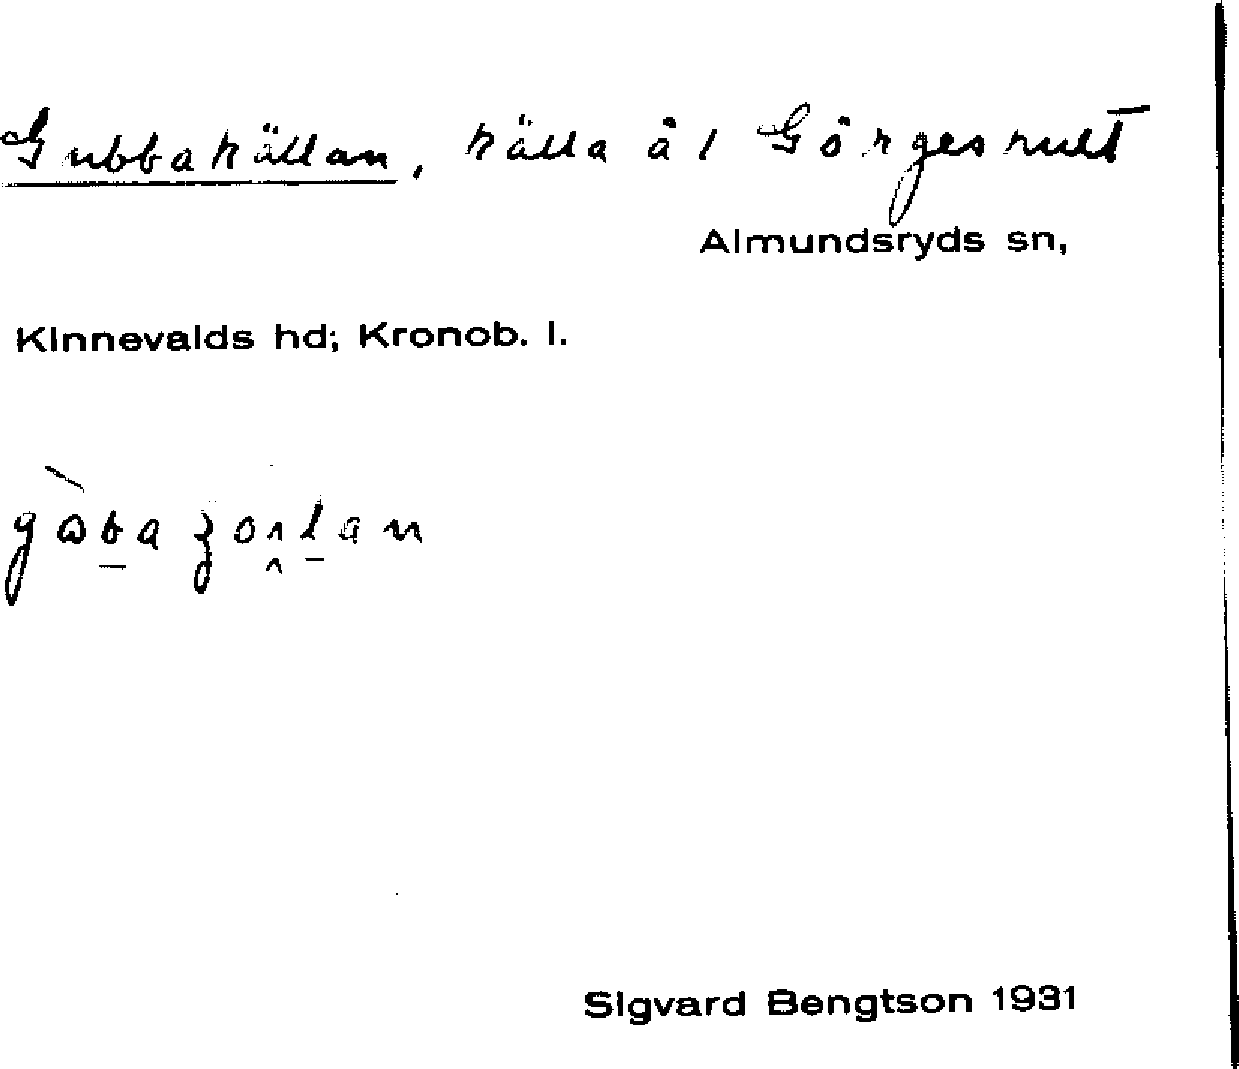 Gubbakällan, källa å 1 Görgeshult
Almundsryds sn,
Kinnevalds hd; Kronob. l.
Sigvard Bengtson 1931